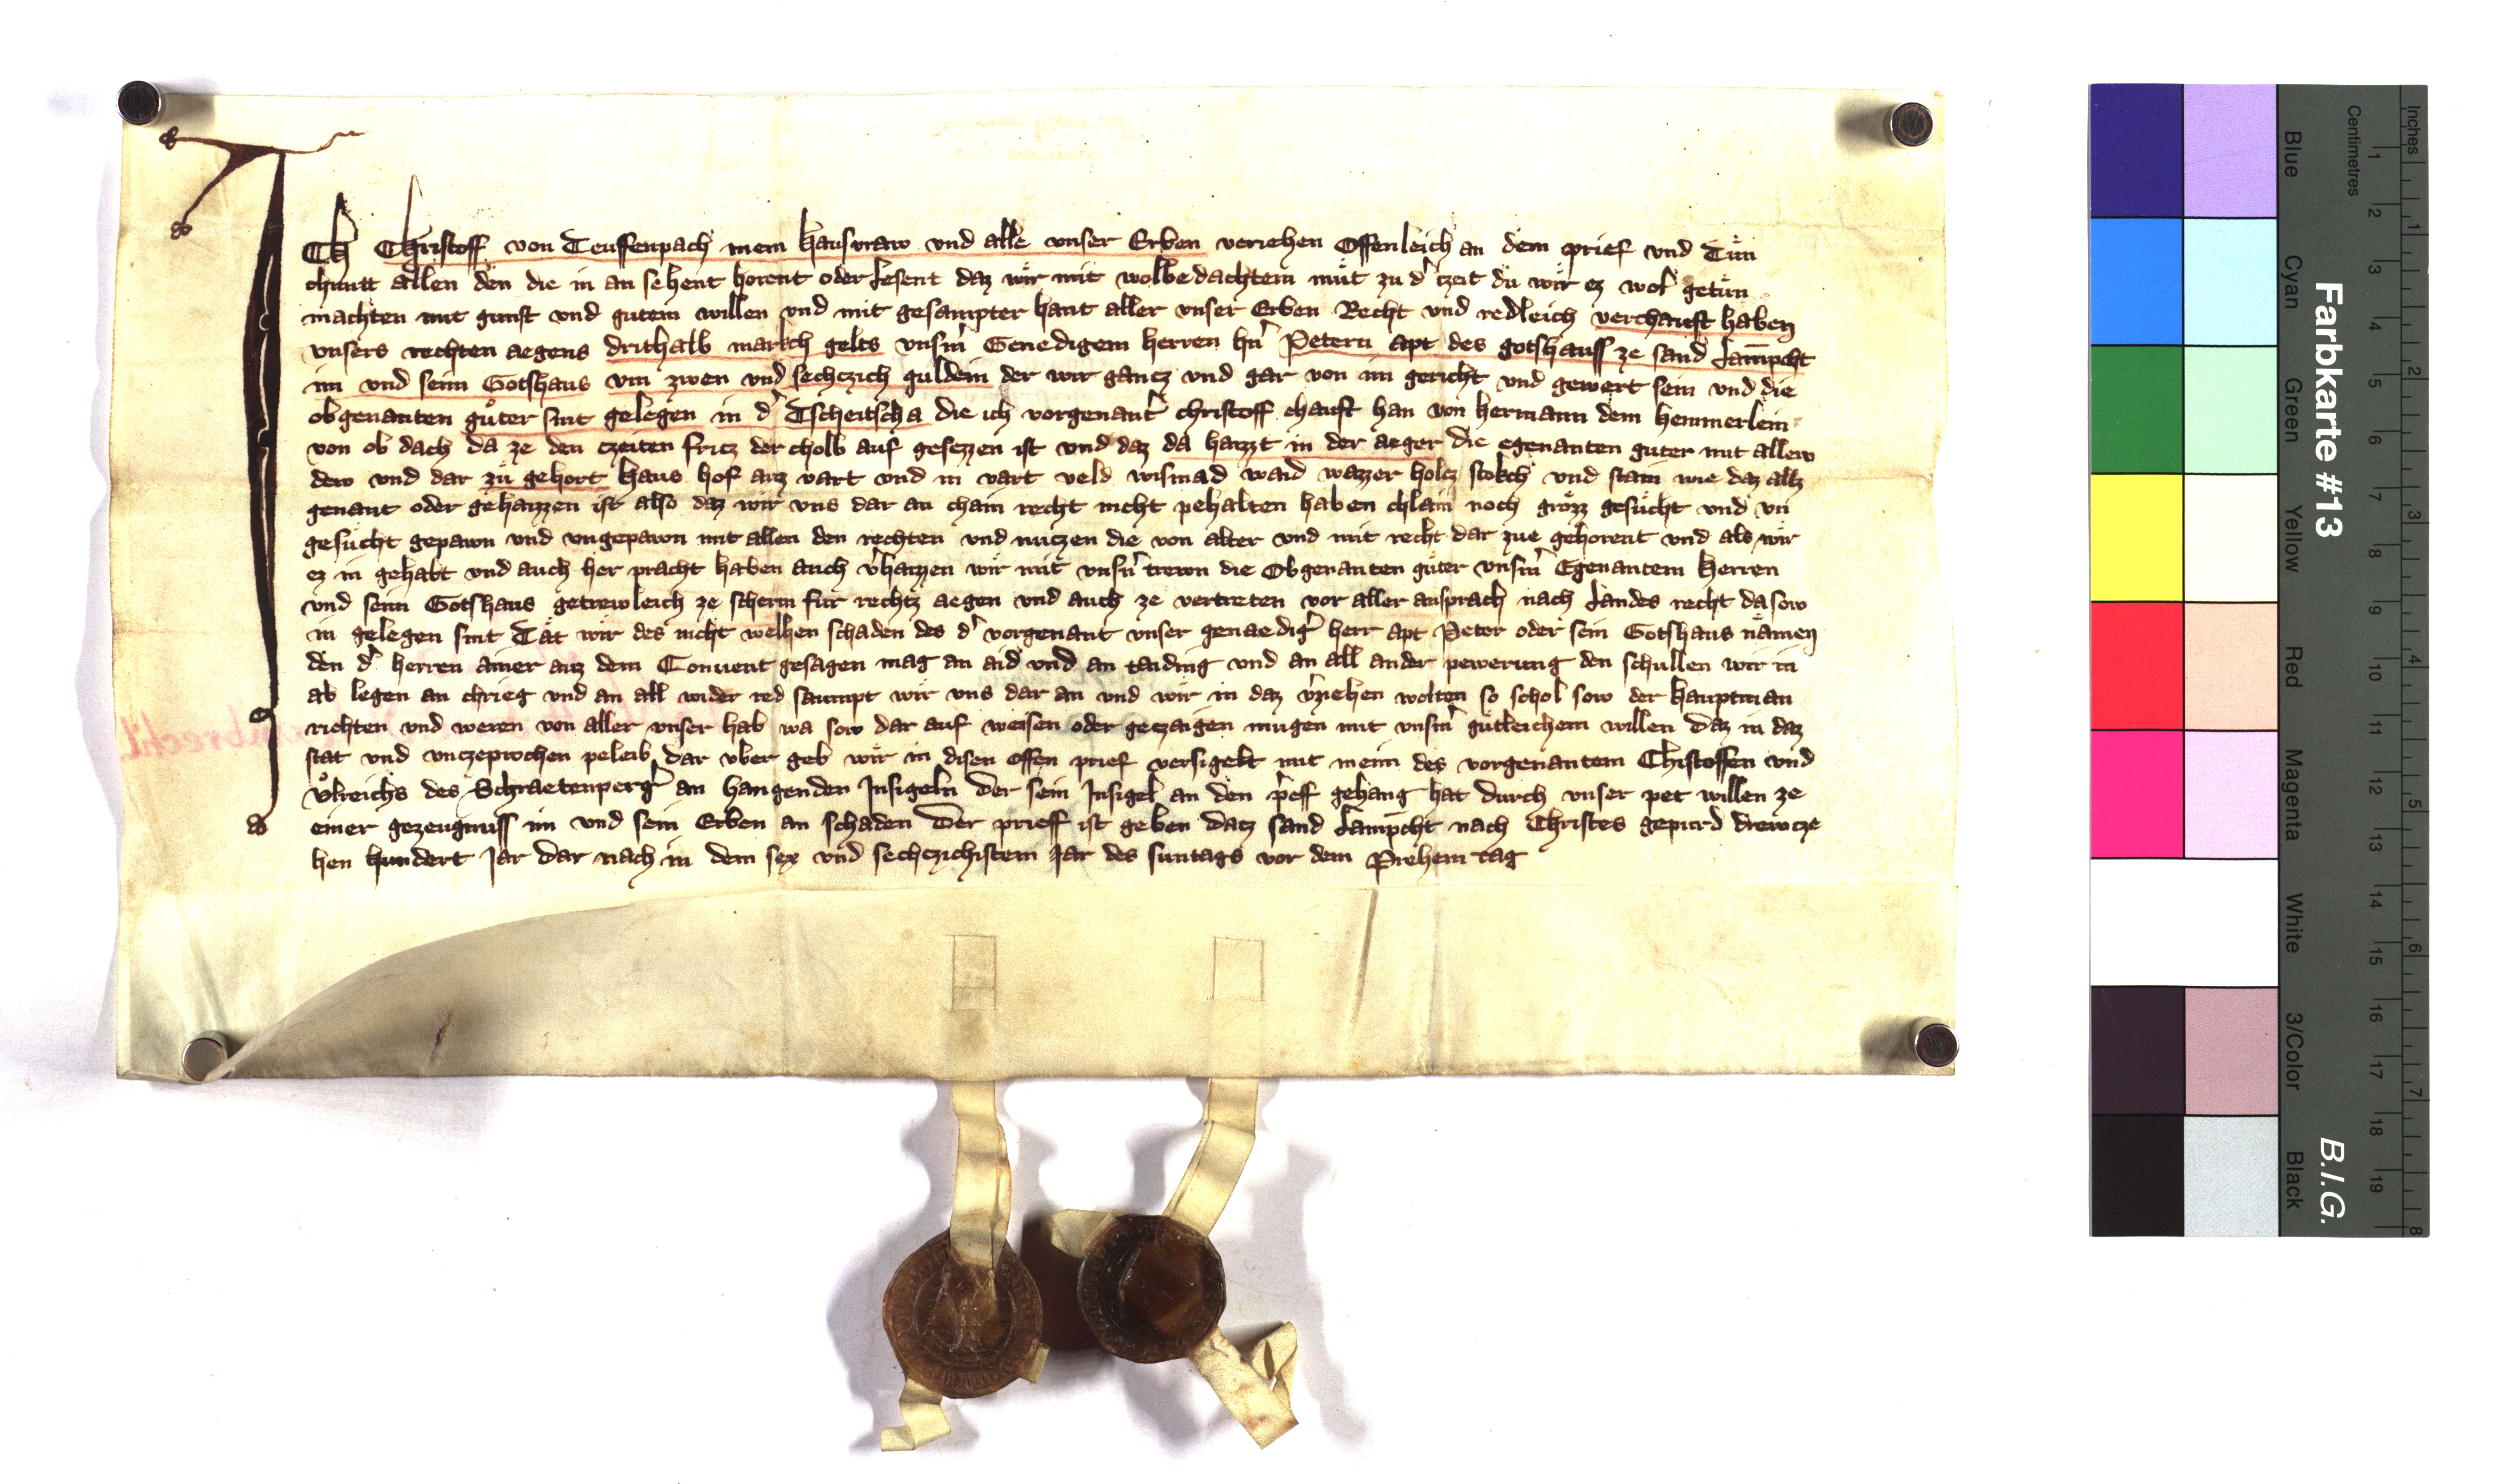 ICH Christoff von Teuffenpach mein hausvraw vnd alle vnser Erben veriehen Offenleich an dem prief vnd Tuͤn
chuntt allen den die in an sehent horent oder lesent daz wir mit wolbedachtem muͤt zu dˀ tzeit du wir ez wol getuͤn
machten mit gunst vnd gutem willen vnd mit gesampter hant aller vnser Erben Recht vnd redleich verchauft haben
vnsers rechten aegens drithalb markch gelts vnsˀm Genedigem herren hˀn Petern apt des gotshauss ze sand Lampcht
im vnd seim Gotshaus vm zwen vnd sechczich guldein der wir gancz vnd gar von im gericht vnd gewert sein vnd die
obgenanten guͤter sint gelegen in dˀ Tscheitscha die ich vorgenantˀ christoff chauft han von hermann dem hemmerlein
von ob dach da ze den czeiten fricz der cholb auf gesezzen ist vnd daz da haizzt in der aeger die egenanten guter mit allew
dew vnd dar zuͤ gehort haus hof auz vart vnd in vart veld wismad waid wazzer holcz stokch vnd stain wie daz allz
genant oder gehaizzen ist also daz wir vns dar an chain recht nicht pehalten haben chlain noch groͤzz gesuͤcht vnd vn
gesuͤcht gepawn vnd vngepawn mit allen den rechten vnd nutzen die von alter vnd mit recht dar zue gehorent vnd als wir
ez in gehabt vnd auch her pracht haben auch vˀhaizzen wir mit vnsˀn trewn die Obgenanten guͤter vnsˀm Egenantem herren
vnd seim Gotshaus getrewleich ze scherm fuͤr rechtz aegen vnd auch ze vertreten vor aller ansprach nach Landes recht da sow
in gelegen sint Taͤt wir des nicht welhen schaden des dˀ vorgenant vnser genaedigˀ herr apt Peter oder sein Gotshaus naͤmen
den dˀ herren ainer auz dem Conuent gesagen mag an aid vnd an taiding vnd an all ander pewerung den schullen wir in
ab legen an chrieg vnd an all wider red saumpt wir vns dar an vnd wir in daz vˀziehen wolten so schol sow der hauptman
richten vnd weren von aller vnser hab wa sow dar auf weisen oder getzaigen mugen mit vnsˀm guͤtleichem willen Daz in daz
stat vnd vnczeprochen peleib dar vber geb wir in disen offen prief versigelt mit meim des vorgenantem Christoffen vnd
Vͦlreichs des Schraetenpergˀ an hangenden Insigeln Der sein Insigel an den pˀeff gehang hat durch vnser pet willen ze
einer gezeugnuss im vnd sein Erben an schaden Der prieff ist geben datz sand Lampcht nach Christes gepurd drewcze
hen hundert Jar Dar nach in dem sex vnd sechczichistem Jar des suntags vor dem Prehem tag
Farbkarte #13
B.I.G.
Centimetres
Inches
Blue
Cyan
Green
Yellow
Red
Magenta
White
3/Color
Black
1 2 3 4 5 6 7 8 9 10 11 12 13 14 15 16 17 18 19
1 2 3 4 5 6 7 8